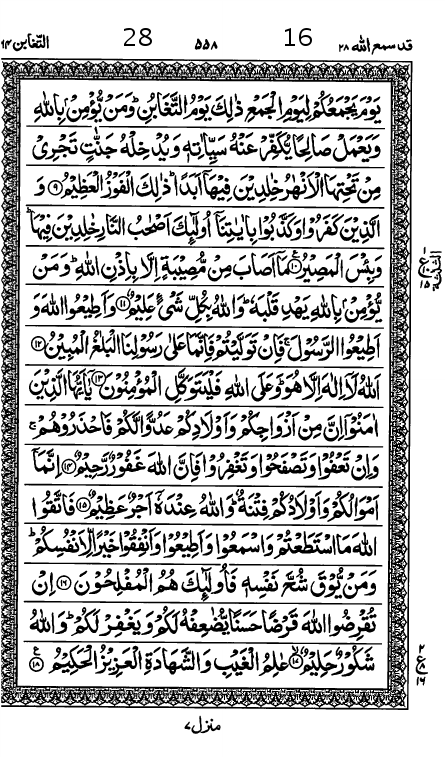 قد سمع الله ٢٨ 16 ٥٥٨ 28 التغابن ٦٤
يَوْمَ يَجْمَعُكُمْ لِيَوْمِ الْجَمْعِ ذٰلِكَ يَوْمُ التَّغَابُنِ ؕ وَمَنْ يُّؤْمِنْۢ بِاللّٰهِ
وَيَعْمَلْ صَالِحًا يُّكَفِّرْ عَنْهُ سَيِّاٰتِهٖ وَيُدْخِلْهُ جَنّٰتٍ تَجْرِيْ
مِنْ تَحْتِهَا الْاَنْهٰرُ خٰلِدِيْنَ فِيْهَاۤ اَبَدًا ؕ ذٰلِكَ الْفَوْزُ الْعَظِيْمُ ﴿۹﴾ وَ
الَّذِيْنَ كَفَرُوْا وَكَذَّبُوْا بِاٰيٰتِنَاۤ اُولٰٓئِكَ اَصْحٰبُ النَّارِ خٰلِدِيْنَ فِيْهَا ؕ
وَبِئْسَ الْمَصِيْرُ ﴿۱۰﴾ مَاۤ اَصَابَ مِنْ مُّصِيْبَةٍ اِلَّا بِاِذْنِ اللّٰهِ ؕ وَمَنْ
يُّؤْمِنْۢ بِاللّٰهِ يَهْدِ قَلْبَهٗ ؕ وَاللّٰهُ بِكُلِّ شَيْءٍ عَلِيْمٌ ﴿۱۱﴾ وَاَطِيْعُوا اللّٰهَ وَ
اَطِيْعُوا الرَّسُوْلَ ۚ فَاِنْ تَوَلَّيْتُمْ فَاِنَّمَا عَلٰى رَسُوْلِنَا الْبَلٰغُ الْمُبِيْنُ ﴿۱۲﴾
اَللّٰهُ لَاۤ اِلٰهَ اِلَّا هُوَ ؕ وَعَلَى اللّٰهِ فَلْيَتَوَكَّلِ الْمُؤْمِنُوْنَ ﴿۱۳﴾ يٰۤاَيُّهَا الَّذِيْنَ
اٰمَنُوْۤا اِنَّ مِنْ اَزْوَاجِكُمْ وَاَوْلَادِكُمْ عَدُوًّا لَّكُمْ فَاحْذَرُوْهُمْ ۚ
وَاِنْ تَعْفُوْا وَتَصْفَحُوْا وَتَغْفِرُوْا فَاِنَّ اللّٰهَ غَفُوْرٌ رَّحِيْمٌ ﴿۱۴﴾ اِنَّمَاۤ
اَمْوَالُكُمْ وَاَوْلَادُكُمْ فِتْنَةٌ ؕ وَاللّٰهُ عِنْدَهٗۤ اَجْرٌ عَظِيْمٌ ﴿۱۵﴾ فَاتَّقُوا
اللّٰهَ مَا اسْتَطَعْتُمْ وَاسْمَعُوْا وَاَطِيْعُوْا وَاَنْفِقُوْا خَيْرًا لِّاَنْفُسِكُمْ ؕ
وَمَنْ يُّوْقَ شُحَّ نَفْسِهٖ فَاُولٰٓئِكَ هُمُ الْمُفْلِحُوْنَ ﴿۱۶﴾ اِنْ
تُقْرِضُوا اللّٰهَ قَرْضًا حَسَنًا يُّضٰعِفْهُ لَكُمْ وَيَغْفِرْ لَكُمْ ؕ وَاللّٰهُ
شَكُوْرٌ حَلِيْمٌ ﴿۱۷﴾ عٰلِمُ الْغَيْبِ وَالشَّهَادَةِ الْعَزِيْزُ الْحَكِيْمُ ﴿۱۸﴾
منزل ٧